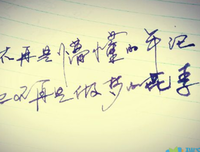 不再是懵懂的年记
也不再是做梦的花季